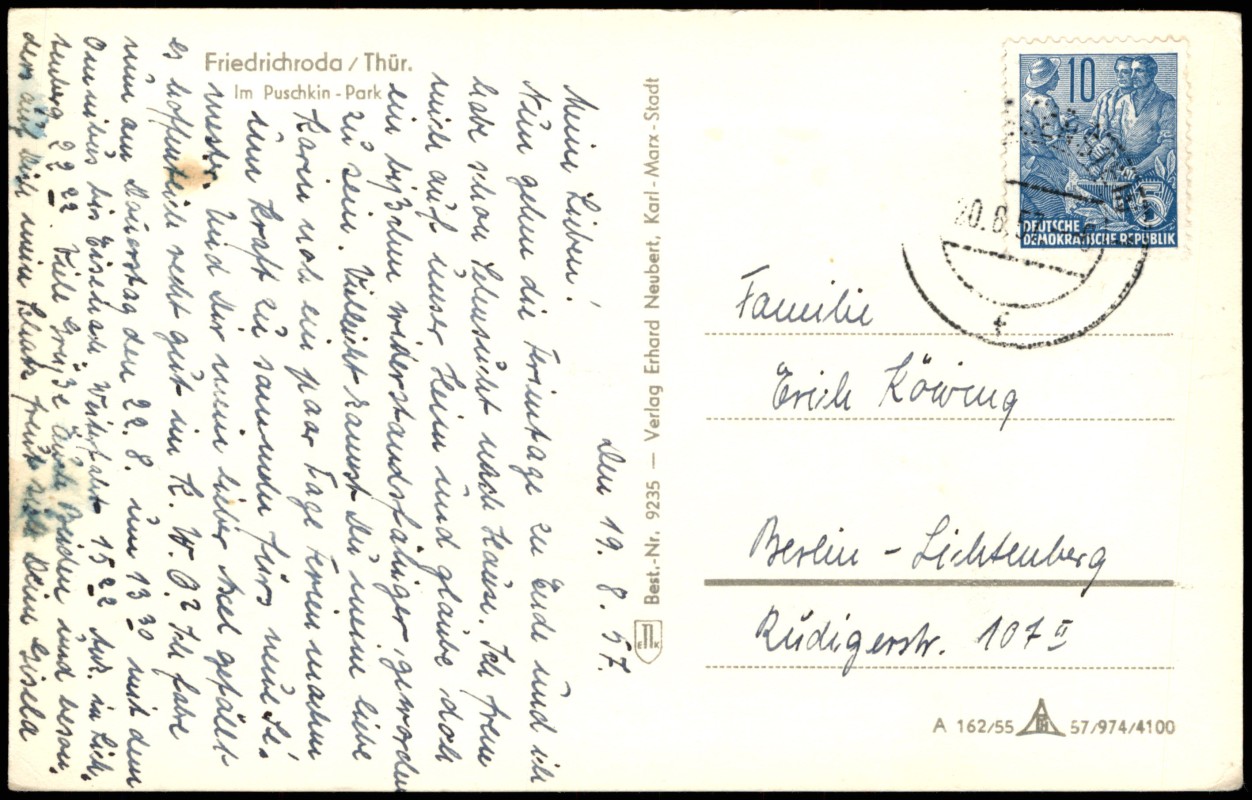 Friedrichroda / Thür.
Im Puschkin - Park
Den 19. 8. 57.
Meine Lieben!
Nun gehen die Ferientage zu Ende und ich
habe schon Sehnsucht nach Hause. Ich freue
mich auf unser Heim und glaube doch
ein bißchen widerstandsfähiger geworden
zu sein. Vielleicht kannst Du meine liebe
Karin noch ein paar Tage Ferien machen
um Kraft zu sammeln fürs neue Se-
mester. Und Dir mein lieber Axel gefällt
es hoffentlich recht gut im K. W. O.? Ich fahre
nun am Donnerstag den 22. 8. um 13 30 mit dem
Omnibus bis Eisenach. Weiterfahrt 15 22 Ank. in Lich-
tenberg 22 22. Viele Grüße Euch Beiden und beson-
ders auf Dich mein Schatz freut sich Deine Gisela
Best.-Nr. 9235 — Verlag Erhard Neubert, Karl-Marx-Stadt
E K
10
5
DEUTSCHE
DEMOKRATISCHE REPUBLIK
20.8.57
f
Familie
Erich Köwing
Berlin - Lichtenberg
Rüdigerstr. 107 II
A 162/55 57/974/4100